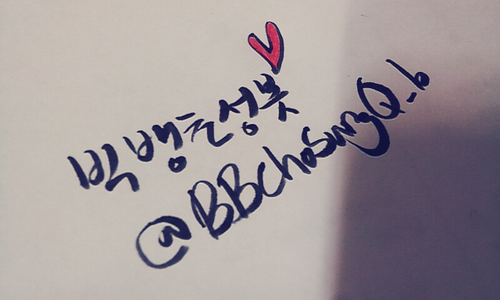 빅뱅초성봇
@BBChoSungQ_b